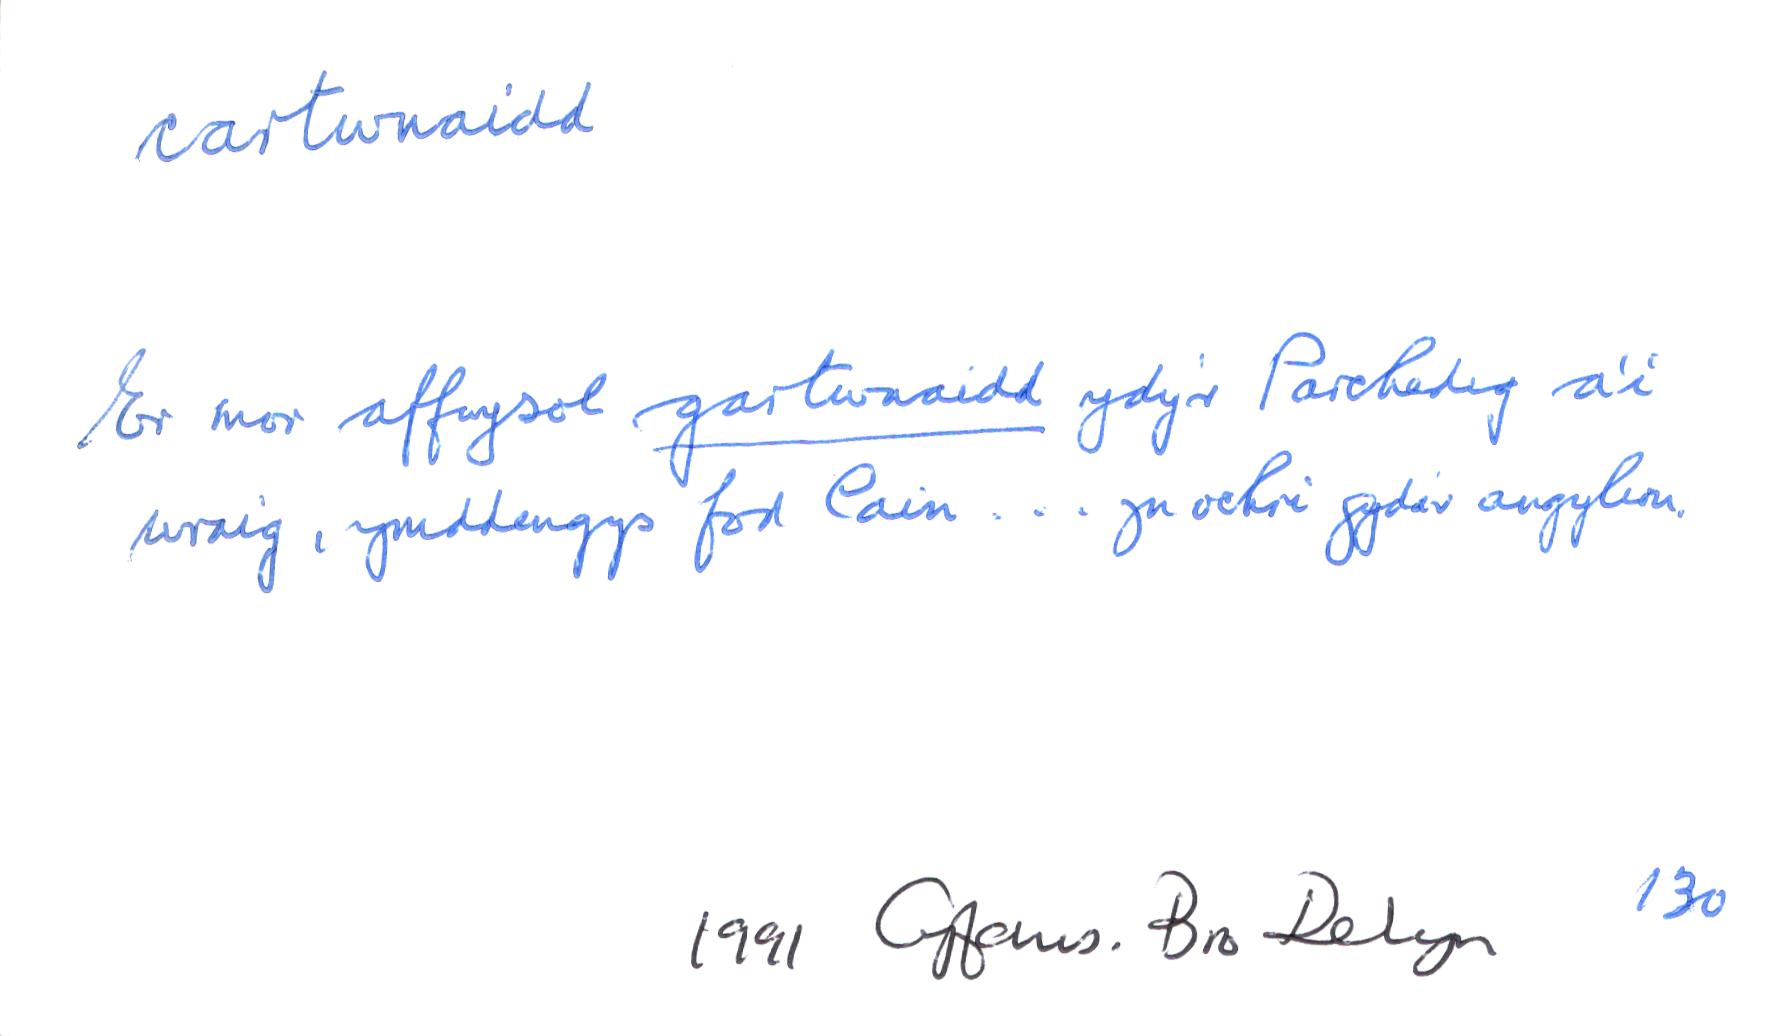 cartwnaidd
Er mor affwysol gartwnaidd ydy'r Parchedig a'i
wraig, ymddengys fod Cain ... yn ochri gyda'r angylion.
130
1991 Cyfans. Bro Delyn